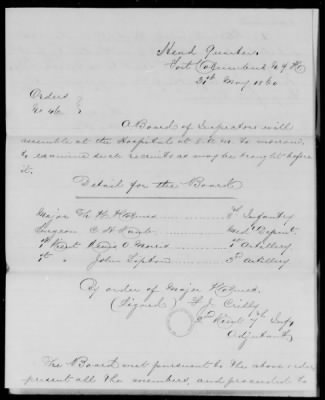 Head Quarters
Fort Columbus N.Y.H.
21st May 1860
Orders
No 46
A Board of Inspectors will
assemble at the Hospital at to morrow
to examine such recruits as may be brought before
it.
Detail for the Board
Major Th. H. Holmes 8th Infantry
Surgeon C. H. Med. Depmt.
1st Lieut 1st Artillery
1st " John 3d Artillery
By order of Major Holmes
(Signed)
2d Lieut 7th Inf.
Adjutant
The Board met pursuant to the above order
present all the members, and proceeded to